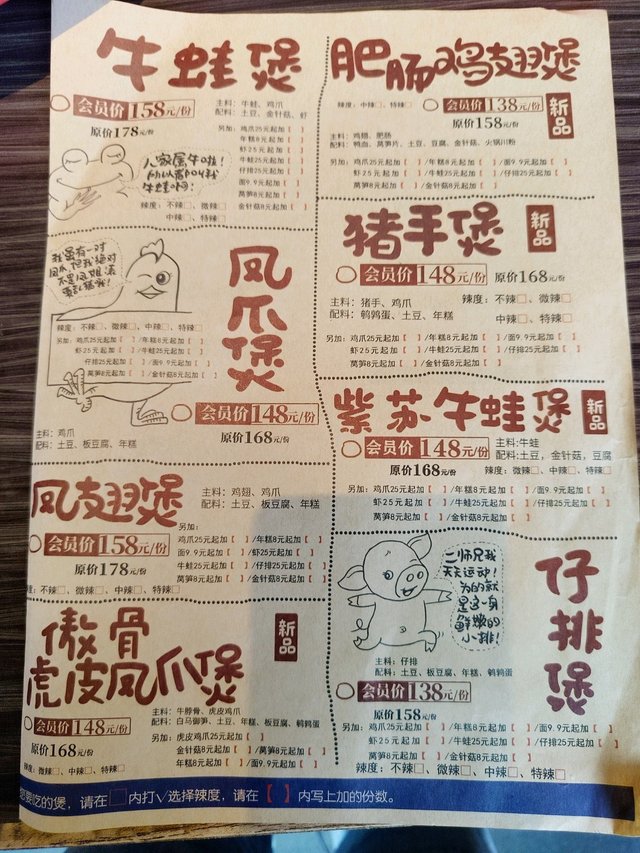 牛蛙煲
会员价158元/份
原价178元/份
主料：牛蛙、鸡爪
配料：土豆、金针菇、虾
另加：鸡爪25元起加【 】
年糕8元起加【 】
虾25元起加【 】
牛蛙25元起加【 】
仔排25元起加【 】
面9.9元起加【 】
莴笋8元起加【 】
金针菇8元起加【 】
人家属牛啦！
所以都叫我
牛蛙啊：
辣度：不辣□、微辣□
中辣□、特辣□
我虽有一对
凤爪，但我绝对
不是凤姐，请
凤爪煲
辣度：不辣□、微辣□、中辣□、特辣□
另加：鸡爪25元起加【 】/年糕8元起加【 】
虾25元起加【 】/牛蛙25元起加【 】
仔排25元起加【 】/面9.9元起加【 】
莴笋8元起加【 】/金针菇8元起加【 】
会员价148元/份
原价168元/份
主料：鸡爪
配料：土豆、板豆腐、年糕
凤翅煲
主料：鸡翅、鸡爪
配料：土豆、板豆腐、年糕
会员价158元/份
原价178元/份
另加：
鸡爪25元起加【 】/年糕8元起加【 】
面9.9元起加【 】/虾25元起加【 】
牛蛙25元起加【 】/仔排25元起加【 】
莴笋8元起加【 】/金针菇8元起加【 】
辣度：不辣□、微辣□、中辣□、特辣□
傲骨
虎皮凤爪煲
新品
会员价148元/份
原价168元/份
主料：牛脖骨、虎皮鸡爪
配料：白马御笋、土豆、年糕、板豆腐、鹌鹑蛋
另加：虎皮鸡爪25元起加【 】
金针菇8元起加【 】/莴笋8元起加【 】
年糕8元起加【 】/面9.9元起加【 】
辣度：微辣□、中辣□、特辣□
肥肠鸡翅煲
辣度：中辣□、特辣□
会员价138元/份
原价158元/份
新品
主料：鸡翅、肥肠
配料：鸭血、莴笋片、土豆、豆腐、金针菇、火锅川粉
另加：鸡爪25元起加【 】/年糕8元起加【 】/面9.9元起加【 】
虾25元起加【 】/牛蛙25元起加【 】/仔排25元起加【 】
莴笋8元起加【 】/金针菇8元起加【 】
猪手煲
新品
会员价148元/份
原价168元/份
主料：猪手、鸡爪
配料：鹌鹑蛋、土豆、年糕
辣度：不辣□、微辣□
中辣□、特辣□
另加：鸡爪25元起加【 】/年糕8元起加【 】/面9.9元起加【 】
虾25元起加【 】/牛蛙25元起加【 】/仔排25元起加【 】
莴笋8元起加【 】/金针菇8元起加【 】
紫苏牛蛙煲
新品
会员价148元/份
原价168元/份
主料:牛蛙
配料:土豆，金针菇，豆腐
辣度：微辣□、中辣□、特辣□
另加：鸡爪25元起加【 】/年糕8元起加【 】/面9.9元起加【 】
虾25元起加【 】/牛蛙25元起加【 】/仔排25元起加【 】
莴笋8元起加【 】/金针菇8元起加【 】
二师兄我
天天运动！
为的就
是这一身
鲜嫩的
小排！
仔排煲
主料：仔排
配料：土豆、板豆腐、年糕、鹌鹑蛋
会员价138元/份
原价158元/份
另加：鸡爪25元起加【 】/年糕8元起加【 】/面9.9元起加【 】
虾25元起加【 】/牛蛙25元起加【 】/仔排25元起加【 】
莴笋8元起加【 】/金针菇8元起加【 】
辣度：不辣□、微辣□、中辣□、特辣□
要吃的煲，请在□内打√选择辣度，请在【 】内写上加的份数。